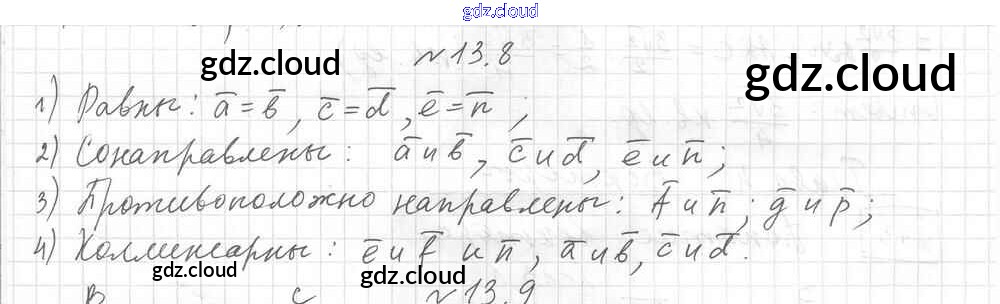 gdz.cloud
№13.8
gdz.cloud
gdz.cloud
1) Равны: a̅ = b̅, c̅ = d̅, e̅ = n̅;
2) Сонаправлены: a̅ и b̅, c̅ и d̅, e̅ и n̅;
3) Противоположно направлены: f̅ и n̅; g̅ и p̅;
4) Коллинеарны: e̅ и f̅ и n̅, a̅ и b̅, c̅ и d̅.
gdz.cloud
gdz.cloud
B C №13.9